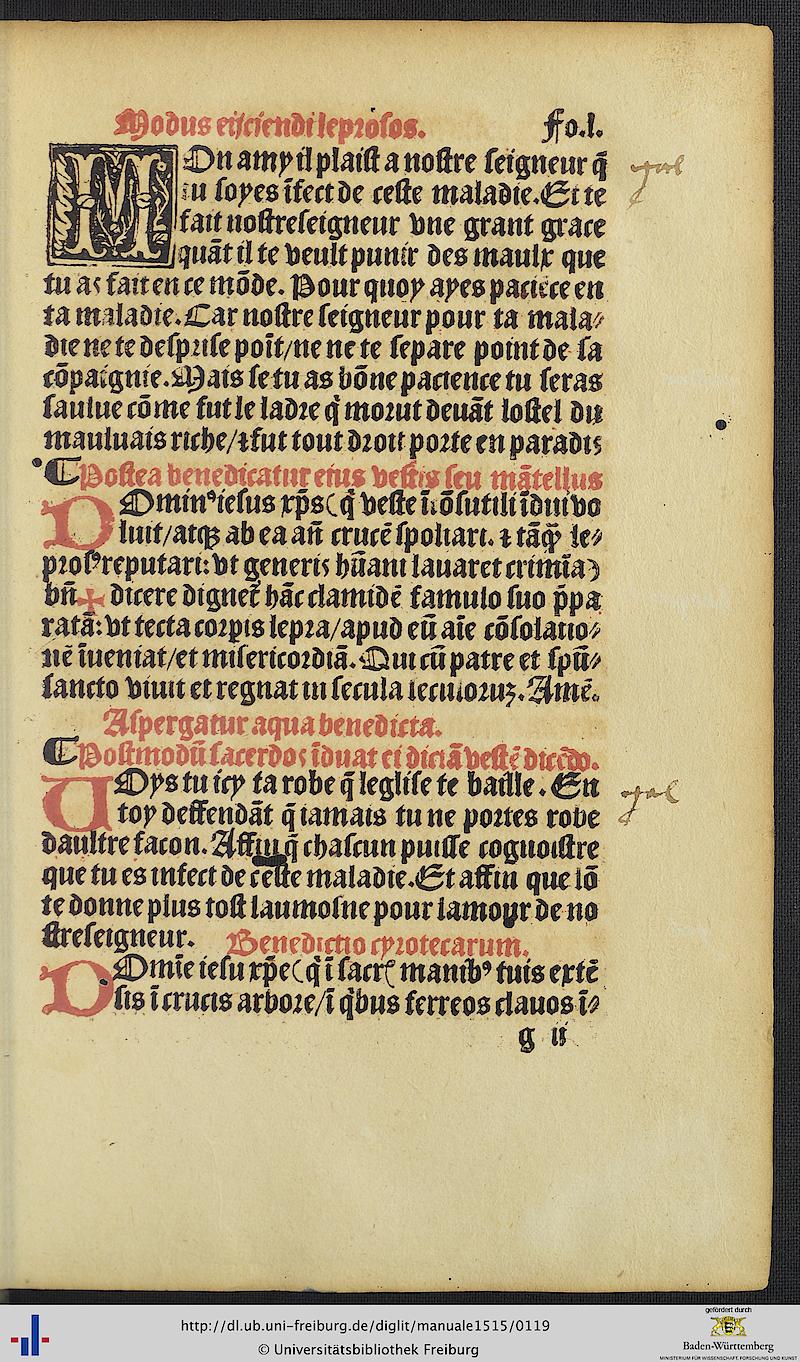 Modus eijciendi leprosos. Fo.l.
MOn amy il plaist a nostre seigneur q̃
tu soyes ĩfect de ceste maladie. Et te
fait nostreseigneur vne grant grace
quãt il te veult punir des maulx que
tu as fait en ce mõde. Pour quoy ayes paciẽce en
ta maladie. Car nostre seigneur pour ta mala⸗
die ne te desprise poĩt/ne ne te separe point de sa
cõpaignie. Mais se tu as bõne pacience tu seras
saulue cõme fut le ladre q̇ morut deuãt lostel du
mauluais riche/⁊ fut tout droit porte en paradis
¶ Postea benedicatur eius vestis seu mãtellus
DOminꝰ iesus xp̃s (q̇ veste ĩcõsutili ĩdui vo
luit/atqꝫ ab ea añ crucẽ spoliari. ⁊ tãꝙ̃ le⸗
prosꝰ reputari: vt generis hũani lauaret crimĩa)
bñ✠dicere dignet̃ hãc clamidẽ famulo suo p̃pa
ratã: vt tecta corpis lepra/apud eũ aĩe cõsolatio⸗
nẽ ĩueniat/et misericordiã. Qui cũ patre et spũ⸗
sancto viuit et regnat in secula seculoruꝫ. Amẽ.
Aspergatur aqua benedicta.
¶ Postmodũ sacerdos ĩduat ei dictã vestẽ dicẽdo.
VOys tu icy ta robe q̃ leglise te baille. En
toy deffendãt q̃ iamais tu ne portes robe
daultre facon. Affin q̃ chascun puisse cognoistre
que tu es infect de ceste maladie. Et affin que lõ
te donne plus tost laumosne pour lamour de no
streseigneur. Benedictio cyrotecarum.
DOmĩe iesu xp̃e (q̇ ĩ sacrꝭ manibꝰ tuis extẽ
sis ĩ crucis arbore/ĩ q̇bus ferreos clauos ĩ⸗
g ij
http://dl.ub.uni-freiburg.de/diglit/manuale1515/0119
© Universitätsbibliothek Freiburg
gefördert durch
Baden-Württemberg
MINISTERIUM FÜR WISSENSCHAFT, FORSCHUNG UND KUNST